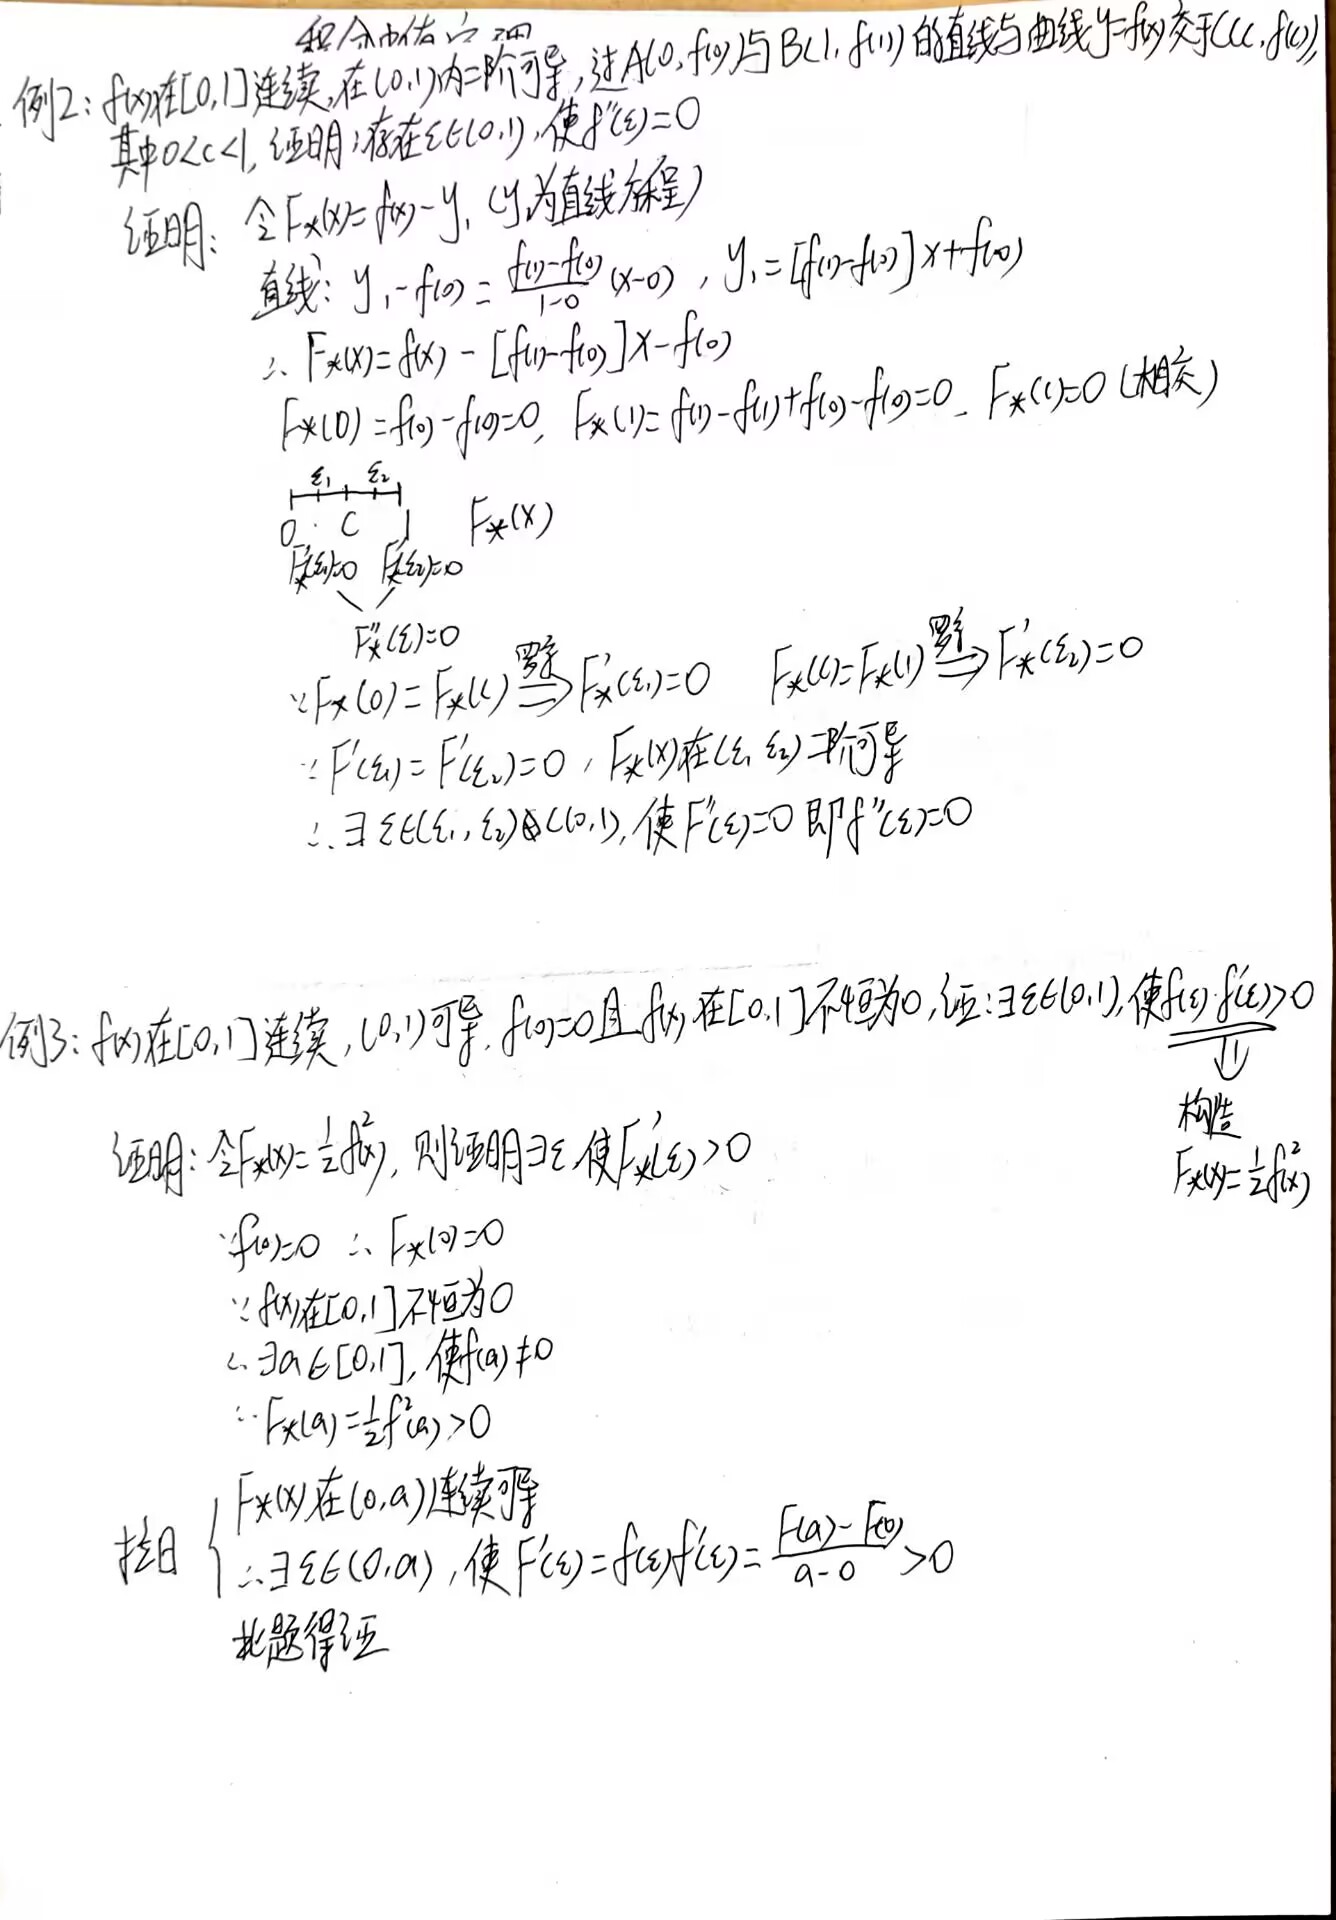 例2：f(x)在[0,1]连续,在(0,1)内二阶可导,过A(0,f(0))与B(1,f(1))的直线与曲线y=f(x)交于C(c,f(c)),
其中0<c<1,证明：存在ξ∈(0,1),使f″(ξ)=0
证明：令F*(x)=f(x)-y₁ (y₁为直线方程)
直线：y₁-f(0)=\frac{f(1)-f(0)}{1-0}(x-0), y₁=[f(1)-f(0)]x+f(0)
∴F*(x)=f(x)-[f(1)-f(0)]x-f(0)
F*(0)=f(0)-f(0)=0, F*(1)=f(1)-f(1)+f(0)-f(0)=0, F*(c)=0(相交)
ξ₁ ξ₂
0 c 1 F*(x)
F*′(ξ₁)=0 F*′(ξ₂)=0
F*″(ξ)=0
∵F*(0)=F*(c) 罗尔⇒ F*′(ξ₁)=0 F*(c)=F*(1) 罗尔⇒ F*′(ξ₂)=0
∵F′(ξ₁)=F′(ξ₂)=0, F*(x)在(ξ₁ ξ₂)二阶可导
∴∃ξ∈(ξ₁,ξ₂)⊂(0,1),使F″(ξ)=0即f″(ξ)=0
例3：f(x)在[0,1]连续,(0,1)可导,f(0)=0且f(x)在[0,1]不恒为0,证：∃ξ∈(0,1),使f(ξ)·f′(ξ)>0
⇓
构造
F*(x)=½f²(x)
证明：令F*(x)=½f²(x),则证明∃ξ,使F*′(ξ)>0
∵f(0)=0 ∴F*(0)=0
∵f(x)在[0,1]不恒为0
∴∃a∈[0,1],使f(a)≠0
∵F*(a)=½f²(a)>0
F*(x)在(0,a)连续可导
拉日 ∴∃ξ∈(0,a),使F′(ξ)=f(ξ)f′(ξ)=\frac{F(a)-F(0)}{a-0}>0
此题得证